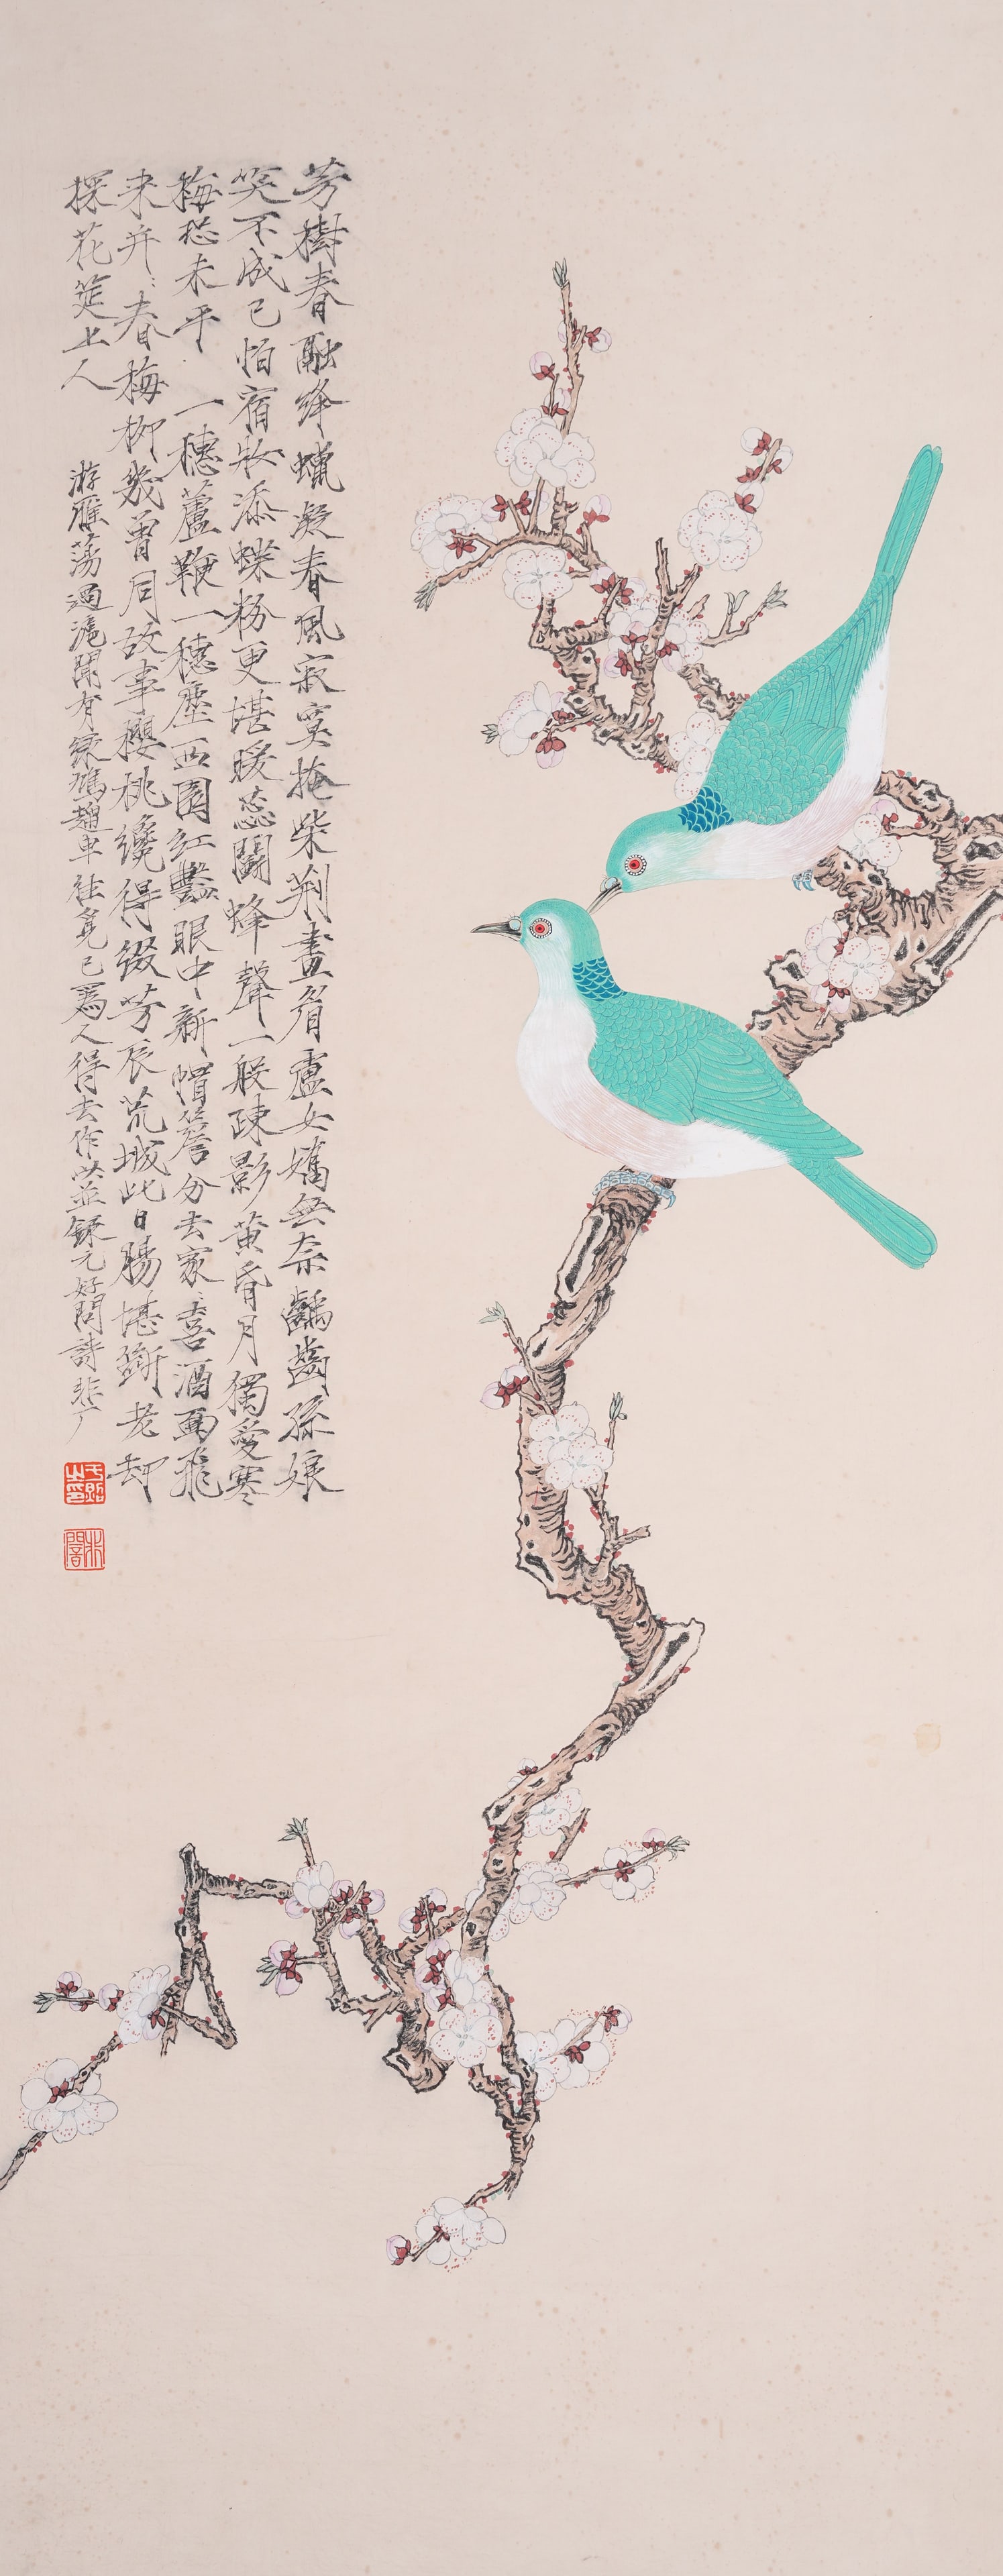 芳樹春融絳蠟凝春風寂寞掩柴荊畫眉盧女嬌無奈齲齒孫娘
笑不成已怕宿妝添蝶粉更堪暖蕊鬧蜂聲一般疎影黃昏月獨愛寒
梅恐未平 一穗蘆鞭一穗塵西園紅豔眼中新帽簷分去家〻喜酒面飛
来并〻春梅柳幾曾同故事櫻桃纔得綴芳辰荒城此日腸堪斷老却
探花筵上人 游雁蕩過滬聞有綠鳩趨車往覓已爲人得去作並錄元好問詩非厂
于照之印
非闇